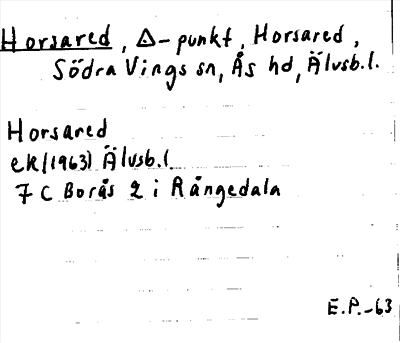 Horsared, Δ-punkt, Horsared,
Södra Vings sn, Ås hd, Älvsb.l.
Horsared
ek/(1963) Älvsb.l.
7 C Borås 2 i Rångedala
E.P.-63